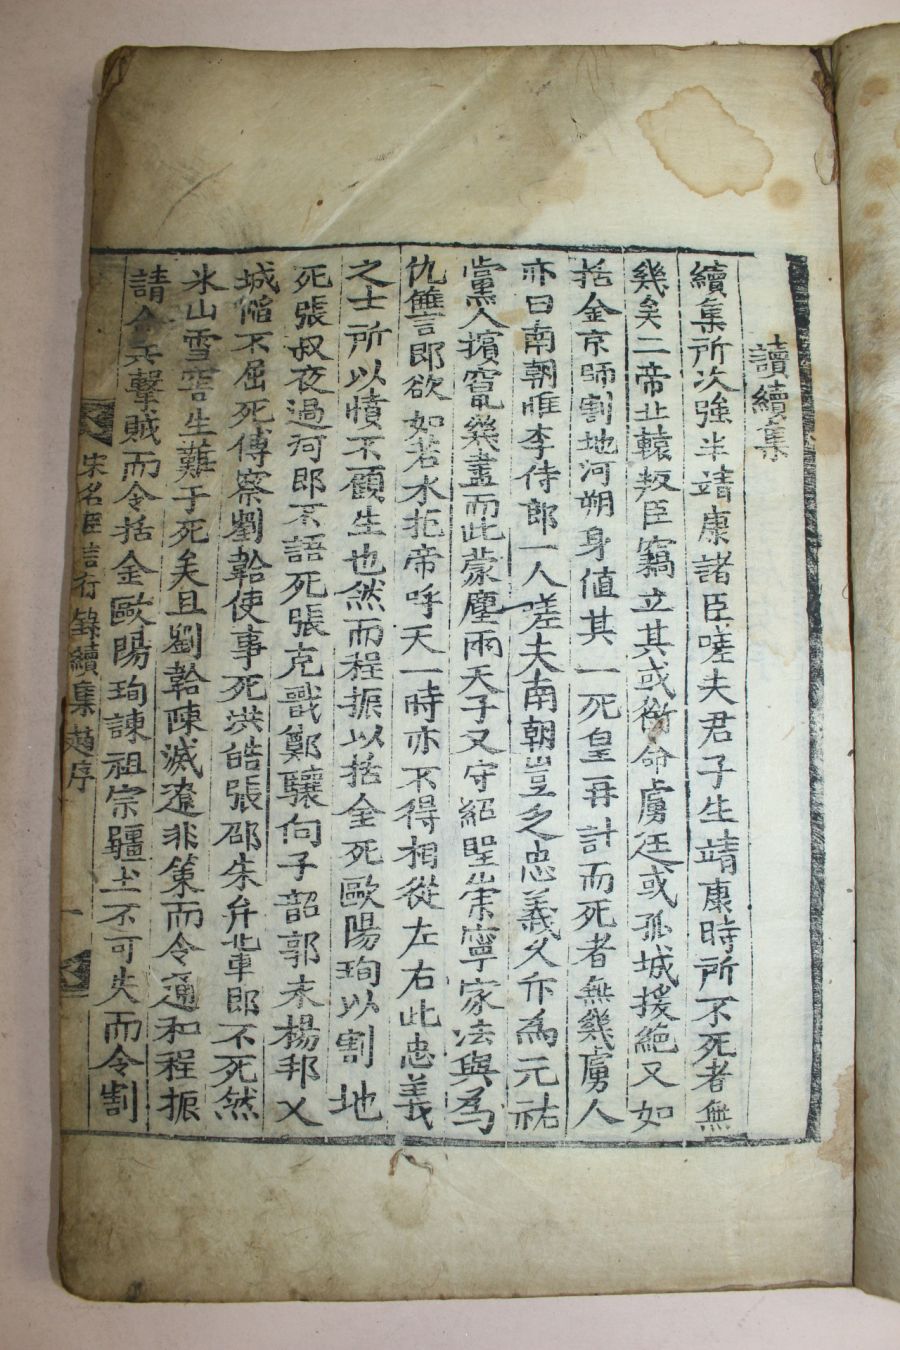 讀續集
續集所次強半靖康諸臣嗟夫君子生靖康時所不死者無
幾矣二帝北轅叛臣竊立其或銜命虜廷或孤城援絕又如
括金京師割地河朔身值其一死皇再計而死者無幾虜人
亦曰南朝惟李侍郎一人嗟夫南朝豈乏忠義乂作為元祐
黨人擯竄幾盡而此蒙塵兩天子又守紹聖崇寧家法與為
仇讎言即欲如若水抱帝呼天一時亦不得相從左右此忠義
之士所以憤不顧生也然而程振以括金死歐陽珣以割地
死張叔夜過河即不語死張克戩鄭驤向子韶郭永楊邦乂
城陷不屈死傅察劉韐使事死洪皓張邵朱弁北車即不死然
氷山雪窖生難于死矣且劉韐陳滅遼非策而令通和程振
請 擊賊而令括金歐陽珣諫祖宗疆土不可失而令割
宋名臣言行錄續集 趙序 一